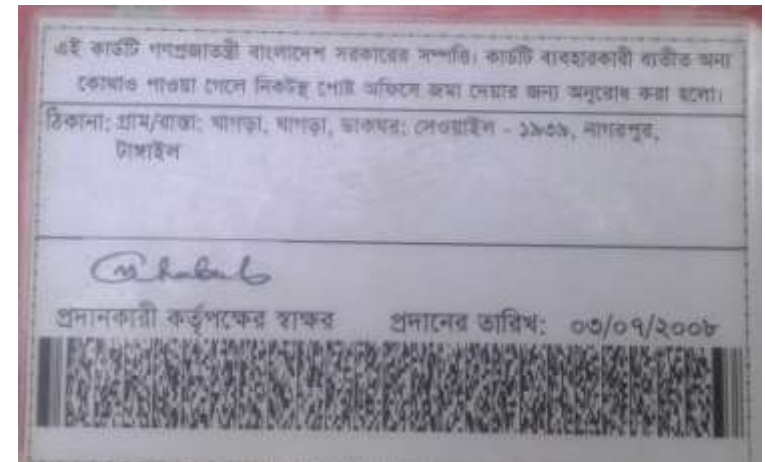 এই কার্ডটি গণপ্রজাতন্ত্রী বাংলাদেশ সরকারের সম্পত্তি। কার্ডটি ব্যবহারকারী ব্যতীত অন্য
কোথাও পাওয়া গেলে নিকটস্থ পোষ্ট অফিসে জমা দেয়ার জন্য অনুরোধ করা হলো।
ঠিকানা: গ্রাম/রাস্তা: ডাকঘর: - ১৯৩৯, নাগরপুর,
টাঙ্গাইল
প্রদানকারী কর্তৃপক্ষের স্বাক্ষর প্রদানের তারিখ: ০৩/০৭/২০০৮